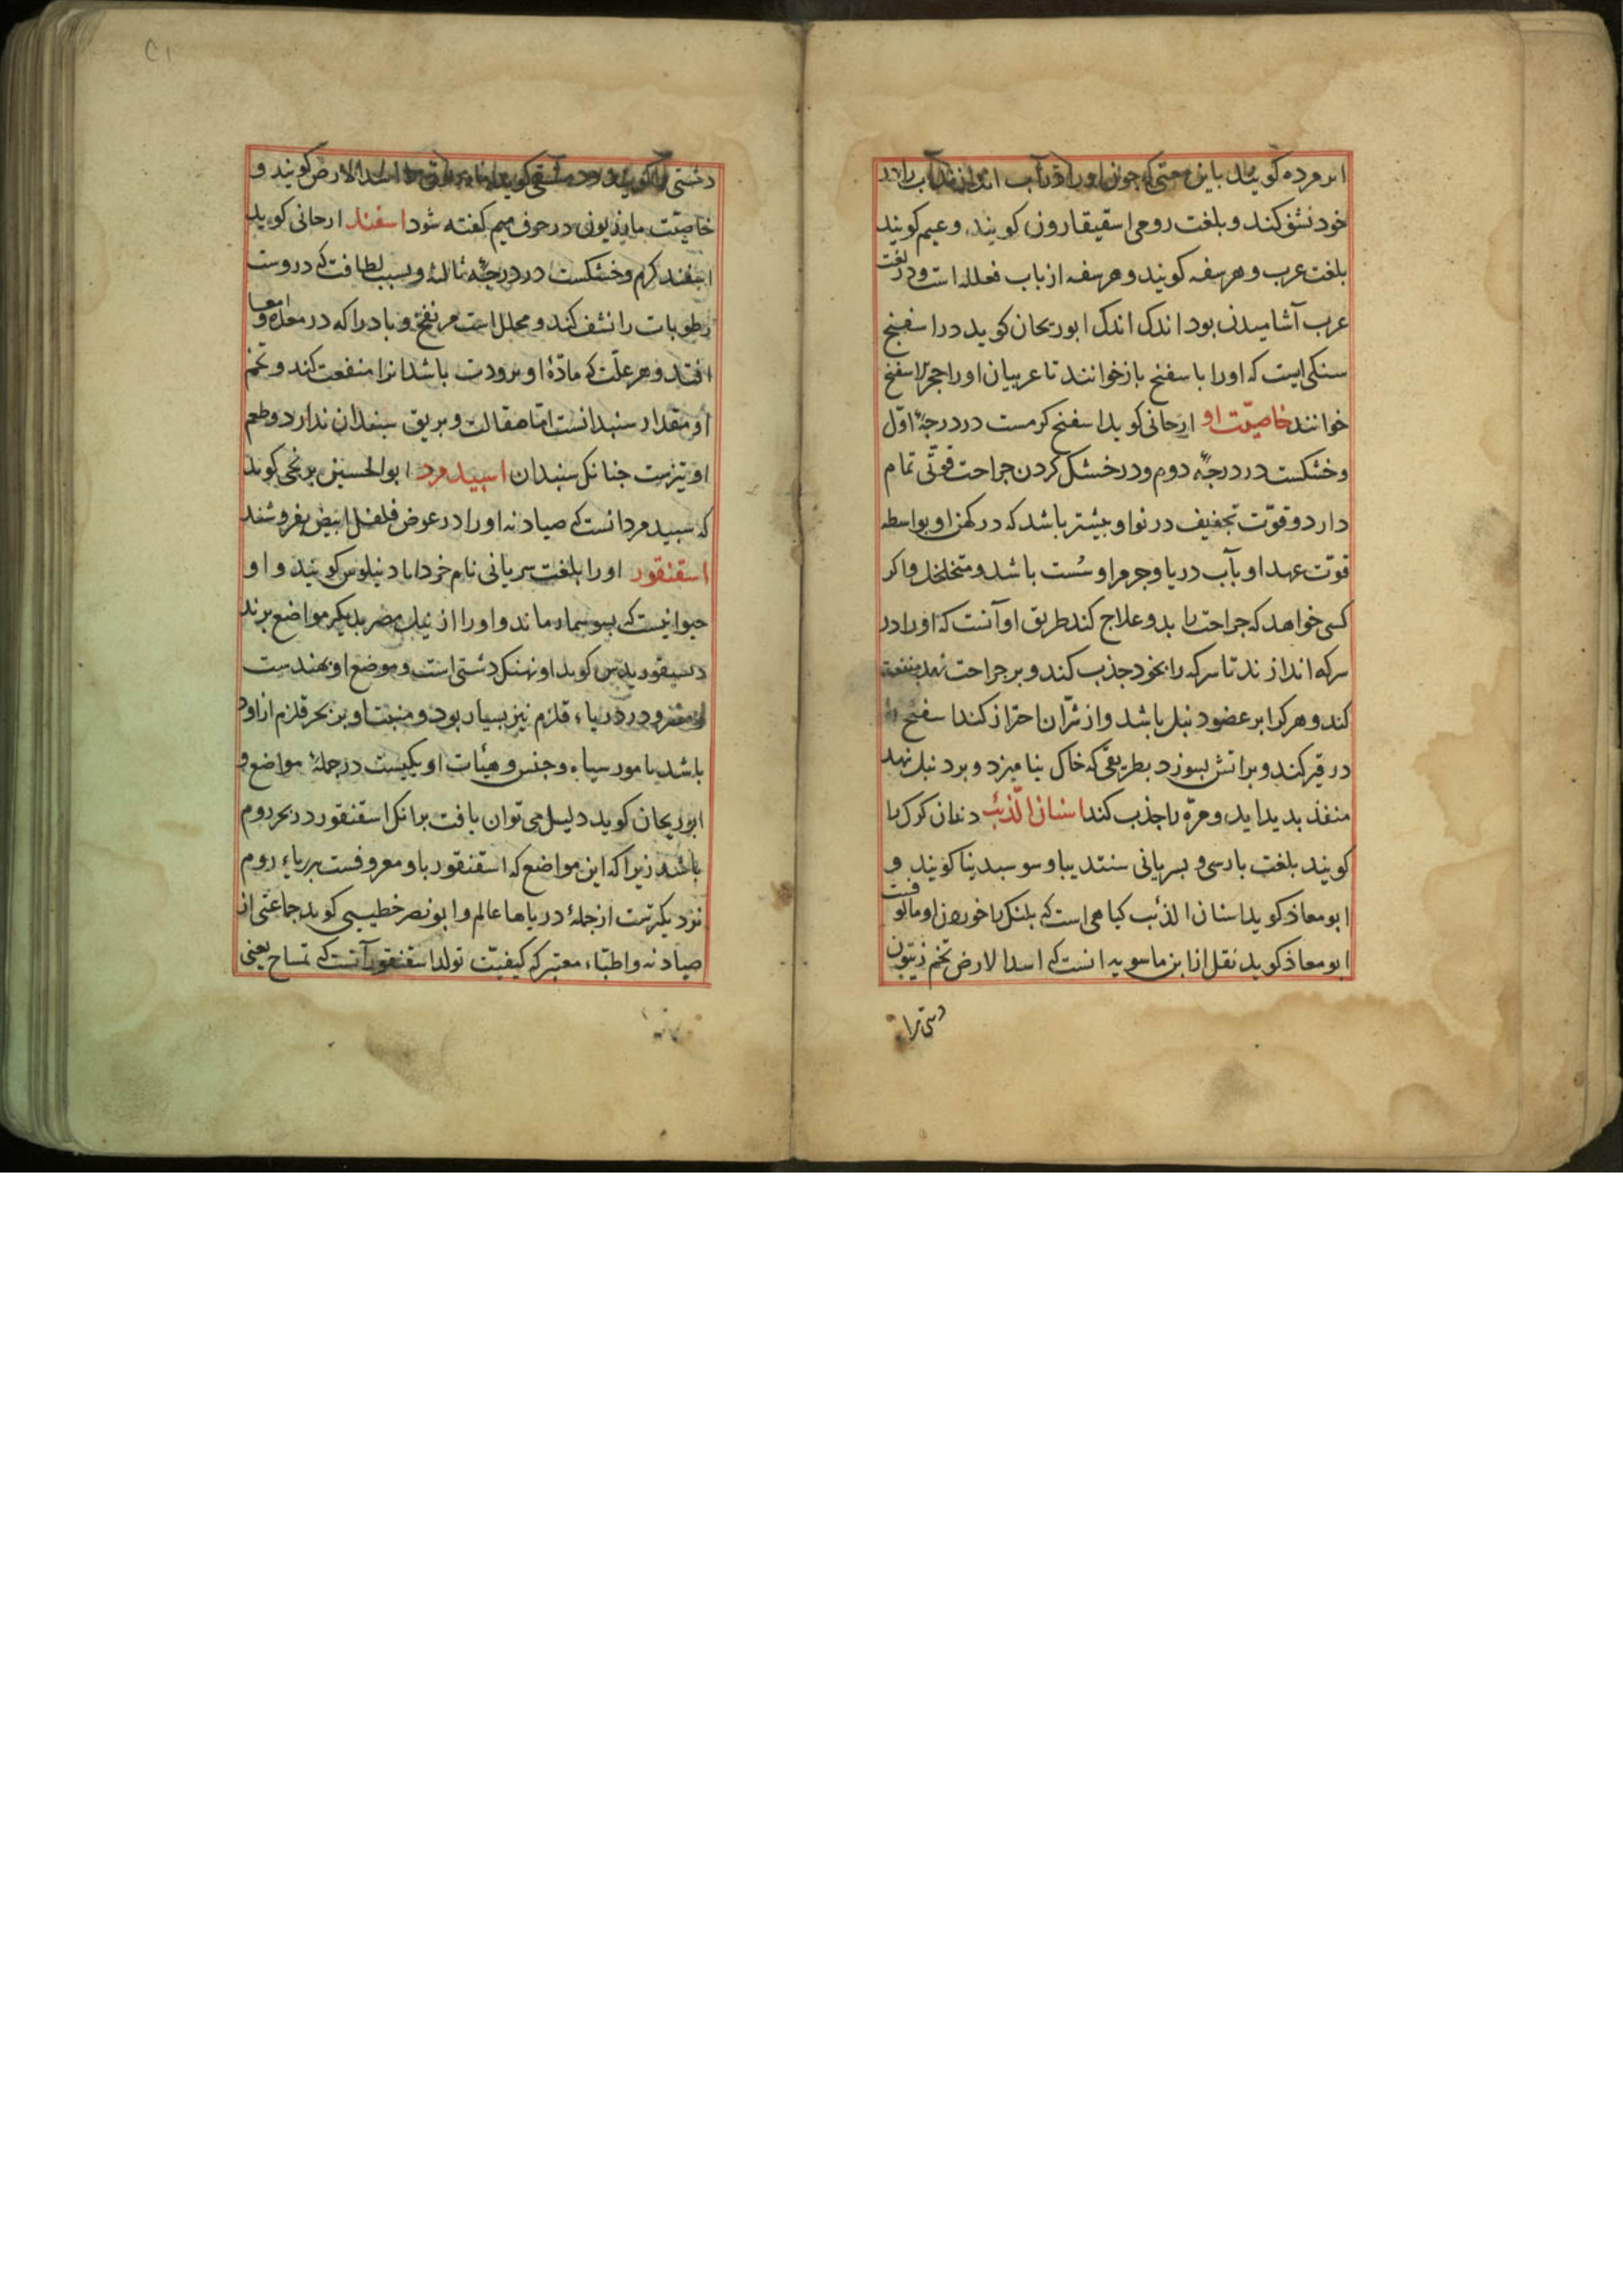 ابر مرده کویند باین معنی که چون او را در آب اندازند آب را در
خود نشف کند و بلغت رومی اسقیقارون کویند و عیم کویند
بلغت عرب و هرسفه کویند و هرسفه از باب فعلله است و در لغت
عرب آشامیدن بود اندک اندک ابوریحان کوید در اسفنج
سنکی است که او را با سفنج بازخوانند تا عربیان او را حجر الاسفنج
خوانند خاصیّت او ارجانی کوید اسفنج کرمست در درجهٔ اوّل
و خشکست در درجهٔ دوم و در خشک کردن جراحت قوّتی تمام
دارد و قوّت تجفیف در نو او بیشتر باشد که در کهن او بواسطه
قوّت عهد او بآب دریا و جرم او سُست باشد و متخلخل و اکر
کسی خواهد که جراحت را بدو علاج کند طریق او آنست که او را در
سرکه اندازند تا سرکه را بخود جذب کند و بر جراحت نهد منفعت
کند و هر کرا بر عضو دنبل باشد و از شرّ آن احتراز کند اسفنج را
در قیر کند و براتش بسوزد بطریقی که خاک نیامیزد و بر دنبل نهد
منفذ بدید اید و مرّه را جذب کند اسنان الذّئب دندان کرک را
کویند بلغت بارسی و بسریانی سنتدیبا و سوسبدینا کویند و
ابو معاذ کوید اسنان الذئب کیاهی است که بلنک را خوردن او مالوفست
ابو معاذ کوید نقل از ابن ماسویه انست که اسد الارض تخم زیتون
دشتی را
دشتی را کویند و دمشقی کوید اسد الارض کویند و
خاصیّت مازریون در حرف میم کفته شود اسفند ارجانی کوید
اسفند کرم و خشکست در درجهٔ ثالثه و بسبب لطافت که دروست
رطوبات را نشف کند و محلل است مر نفخ و باد را که در معده و امعا
افتد و هر علّت که مادّهٔ او برودت باشد انرا منفعت کند و تخم
او بمقدار سنبدانست امّا صقالت و بریق سنبدان ندارد و طعم
او تیزست جنانک سنبدان اسبید مرد ابو الحسین برنجی کوید
که سبید مرد انست که صیادنه او را در عوض فلفل ابیض بفروشند
اسقنقور او را بلغت سریانی نام خرداباد نیلوس کویند و او
حیوانیست که بسوسمار ماند و او را از نیل مصر بدیکر مواضع برند
دسیقوریدس کوید او نهنک دشتی است و موضع او بهندست
و در دریاء قلزم نیز بسیار بود و منبت او بر بحر قلزم از اود
باشد با مور سیاه و جنس و هیٔات او یکیست در جملهٔ مواضع و
ابوریحان کوید دلیل می توان یافت برانک اسقنقور در بحر روم
باشد زیرا که این مواضع که اسقنقور باو معروفست بدریاء روم
نزدیکترست از جملهٔ دریاها عالم و ابو نصر خطیبی کوید جماعتی از
صیادنه و اطبّاء معتبر که کیفیّت تولد اسقنقور آنست که تمساح یعنی